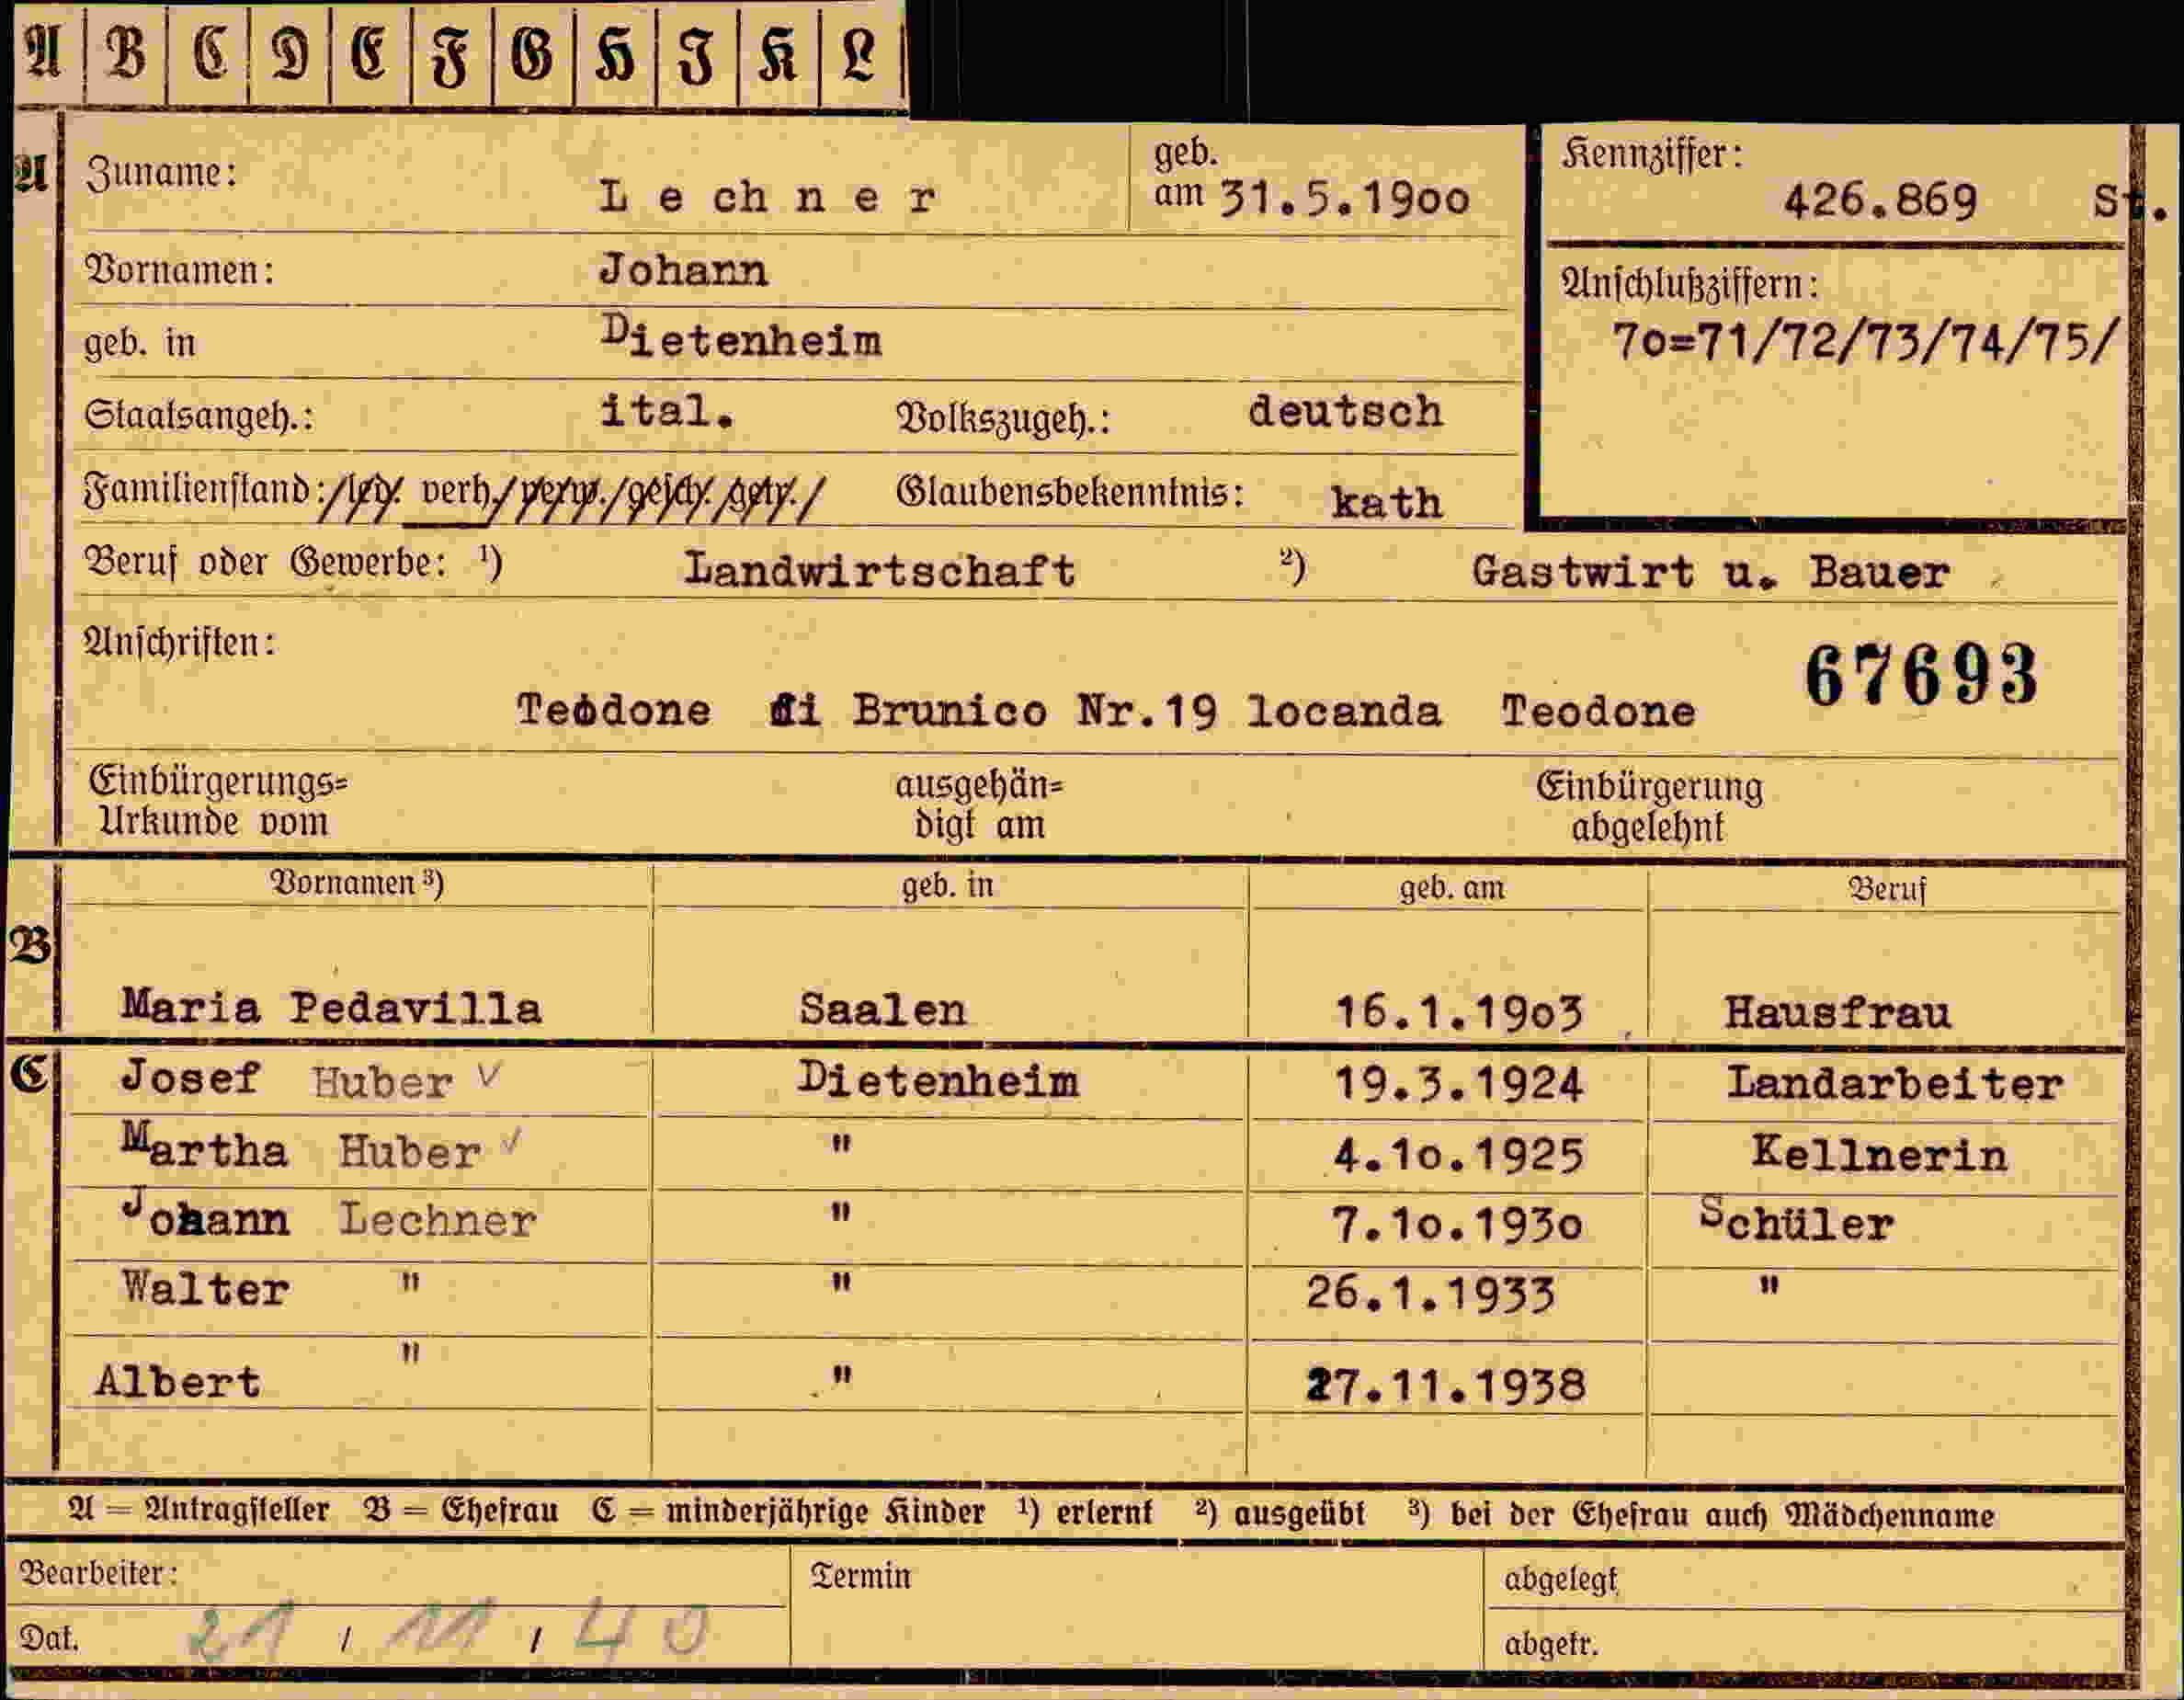 A B C D E F G H I K L
A Zuname: Lechner geb. am 31.5.19oo Kennziffer: 426.869 St.
Vornamen: Johann
Anschlußziffern:
geb. in Dietenheim 7o=71/72/73/74/75/
Staatsangeh.: ital. Volkszugeh.: deutsch
Familienstand: /led. verh./verw./gesch./getr./ Glaubensbekenntnis: kath
Beruf oder Gewerbe: ¹) Landwirtschaft ²) Gastwirt u. Bauer
Anschriften:
67693
Teodone di Brunico Nr.19 locanda Teodone
Einbürgerungs= ausgehän= Einbürgerung
Urkunde vom digt am abgelehnt
B Vornamen ³) geb. in geb. am Beruf
Maria Pedavilla Saalen 16.1.19o3 Hausfrau
C Josef Huber ✓ Dietenheim 19.3.1924 Landarbeiter
Martha Huber ✓ " 4.1o.1925 Kellnerin
Johann Lechner " 7.1o.193o Schüler
Walter " " 26.1.1933 "
Albert " " 27.11.1938
A = Antragsteller B = Ehefrau C = minderjährige Kinder ¹) erlernt ²) ausgeübt ³) bei der Ehefrau auch Mädchenname
Bearbeiter: Termin abgelegt
Dat. 21 / 11 / 40 abgetr.